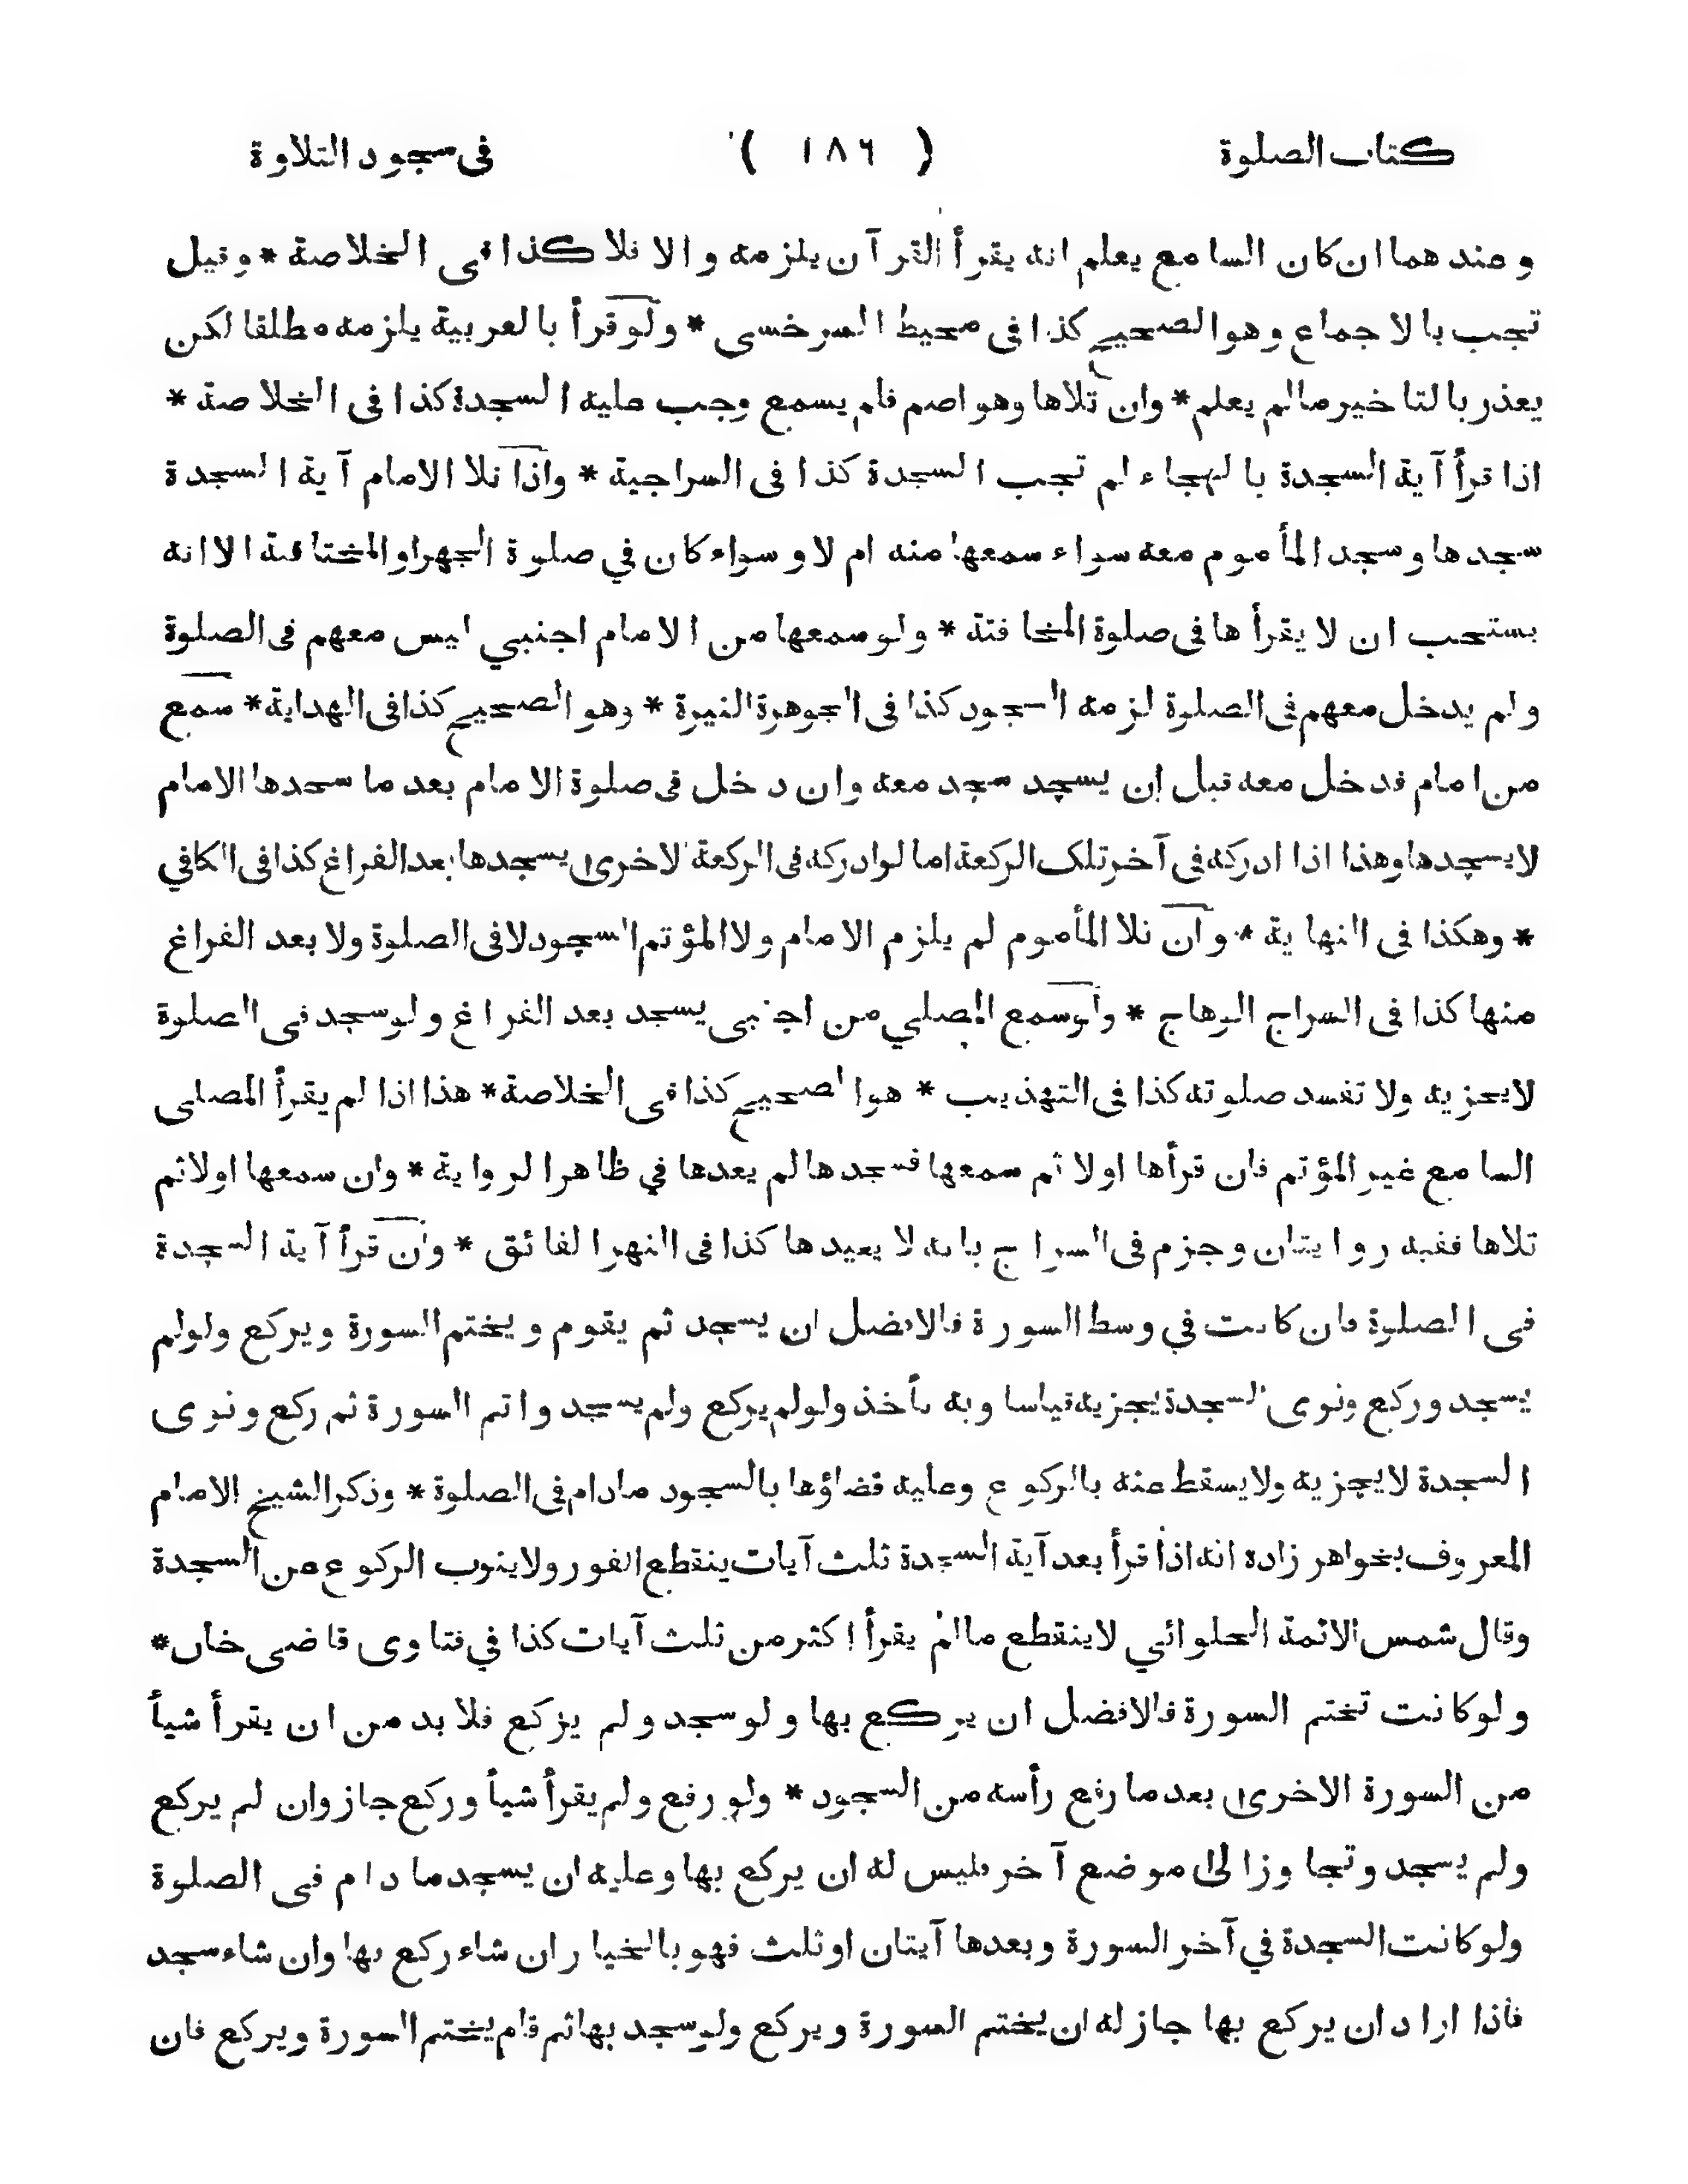 كتاب الصلوة ( ١٨٦ ) فى سجود التلاوة
وعندهما ان كان السامع يعلم انه يقرأ القرآن يلزمه والا فلا كذا فى الخلاصة * وقيل
تجب بالاجماع وهو الصحيح كذا فى محيط السرخسى * ولو قرأ بالعربية يلزمه مطلقا لكن
يعذر بالتاخير مالم يعلم * وان تلاها وهو اصم فلم يسمع وجب عليه السجدة كذا فى الخلاصة *
اذا قرأ آية السجدة بالهجاء لم تجب السجدة كذا فى السراجية * واذا تلا الامام آية السجدة
سجدها وسجد المأموم معه سواء سمعها منه ام لا وسواء كان في صلوة الجهر او المخافتة الا انه
يستحب ان لا يقرأها فى صلوة المخافتة * ولو سمعها من الامام اجنبي ليس معهم فى الصلوة
ولم يدخل معهم فى الصلوة لزمه السجود كذا فى الجوهرة النيرة * وهو الصحيح كذا فى الهداية * سمع
من امام فدخل معه قبل ان يسجد سجد معه وان دخل فى صلوة الامام بعد ما سجدها الامام
لا يسجدها وهذا اذا ادركه فى آخر تلك الركعة اما لو ادركه فى الركعة الاخرى يسجدها بعد الفراغ كذا فى الكافي
* وهكذا فى النهاية * وان تلا المأموم لم يلزم الامام ولا المؤتم السجود لا فى الصلوة ولا بعد الفراغ
منها كذا فى السراج الوهاج * ولو سمع المصلي من اجنبى يسجد بعد الفراغ ولو سجد فى الصلوة
لا يجزيه ولا تفسد صلوته كذا فى التهذيب * هو الصحيح كذا فى الخلاصة * هذا اذا لم يقرأ المصلى
السامع غير المؤتم فان قرأها اولا ثم سمعها فسجدها لم يعدها في ظاهر الرواية * وان سمعها اولا ثم
تلاها ففيه روايتان وجزم فى السراج بانه لا يعيدها كذا فى النهر الفائق * وان قرأ آية السجدة
فى الصلوة فان كانت في وسط السورة فالافضل ان يسجد ثم يقوم ويختم السورة ويركع ولولم
يسجد وركع ونوى السجدة يجزيه قياسا وبه نأخذ ولو لم يركع ولم يسجد واتم السورة ثم ركع ونوى
السجدة لا يجزيه ولا يسقط عنه بالركوع وعليه قضاؤها بالسجود مادام فى الصلوة * وذكر الشيخ الامام
المعروف بخواهر زاده انه اذا قرأ بعد آية السجدة ثلث آيات ينقطع الفور ولا ينوب الركوع عن السجدة
وقال شمس الائمة الحلوائي لا ينقطع مالم يقرأ اكثر من ثلث آيات كذا في فتاوى قاضى خان *
ولو كانت تختم السورة فالافضل ان يركع بها ولو سجد ولم يركع فلا بد من ان يقرأ شيأ
من السورة الاخرى بعد ما رفع رأسه من السجود * ولو رفع ولم يقرأ شيأ وركع جاز وان لم يركع
ولم يسجد وتجاوز الى موضع آخر فليس له ان يركع بها وعليه ان يسجد ما دام فى الصلوة
ولو كانت السجدة في آخر السورة وبعدها آيتان او ثلث فهو بالخيار ان شاء ركع بها وان شاء سجد
فاذا اراد ان يركع بها جاز له ان يختم السورة ويركع ولو سجد بها ثم قام يختم السورة ويركع فان